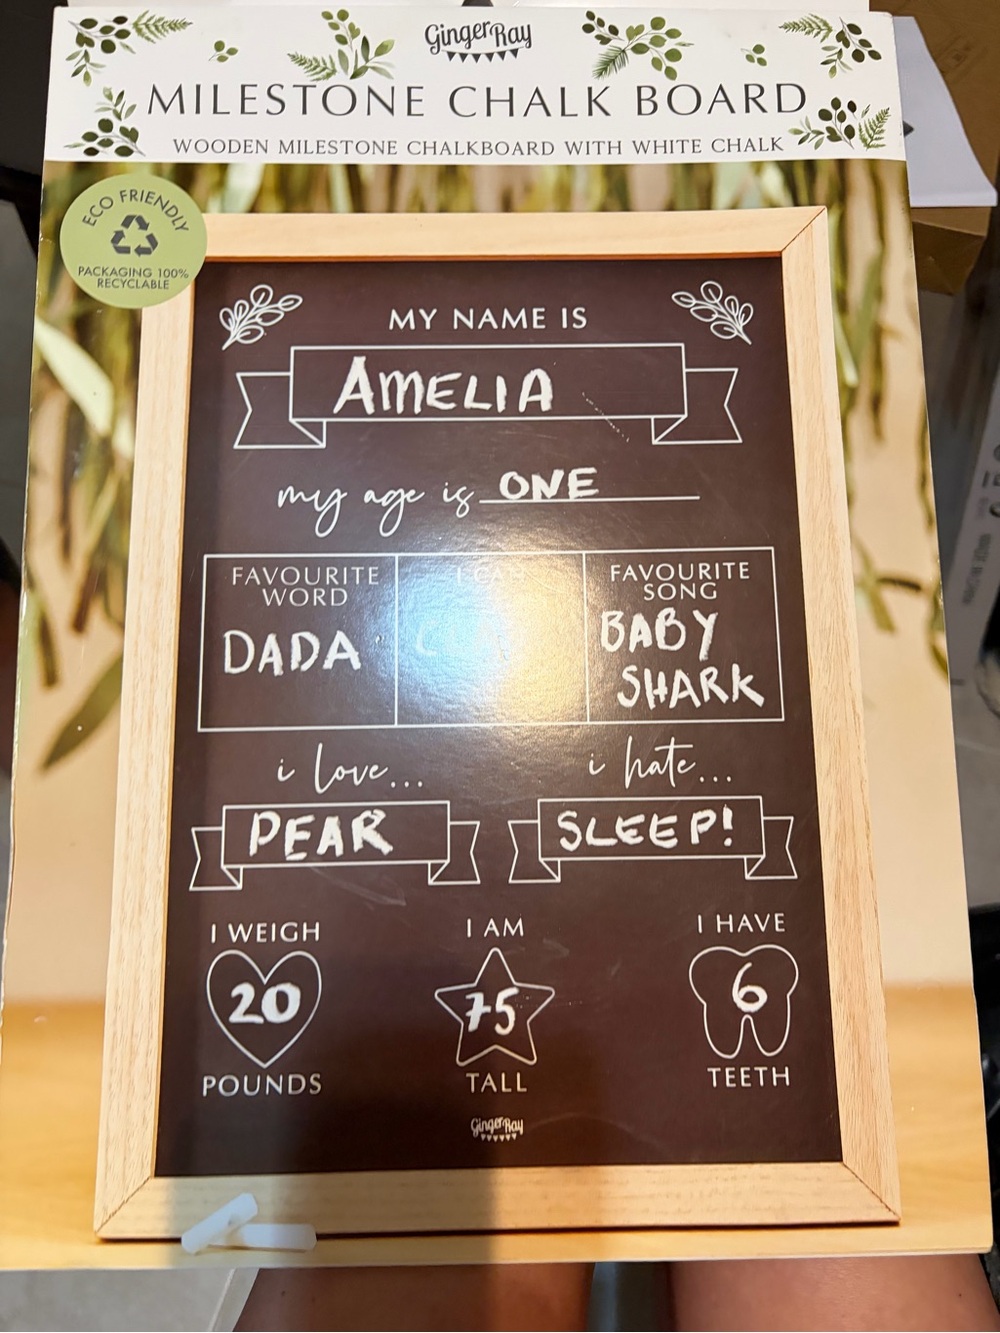 Ginger Ray
MILESTONE CHALK BOARD
WOODEN MILESTONE CHALKBOARD WITH WHITE CHALK
ECO FRIENDLY
PACKAGING 100%
RECYCLABLE
MY NAME IS
AMELIA
my age is ONE
FAVOURITE
WORD
DADA
I CAN
FAVOURITE
SONG
BABY
SHARK
i love...
PEAR
i hate...
SLEEP!
I WEIGH
20
POUNDS
I AM
75
TALL
I HAVE
6
TEETH
Ginger Ray